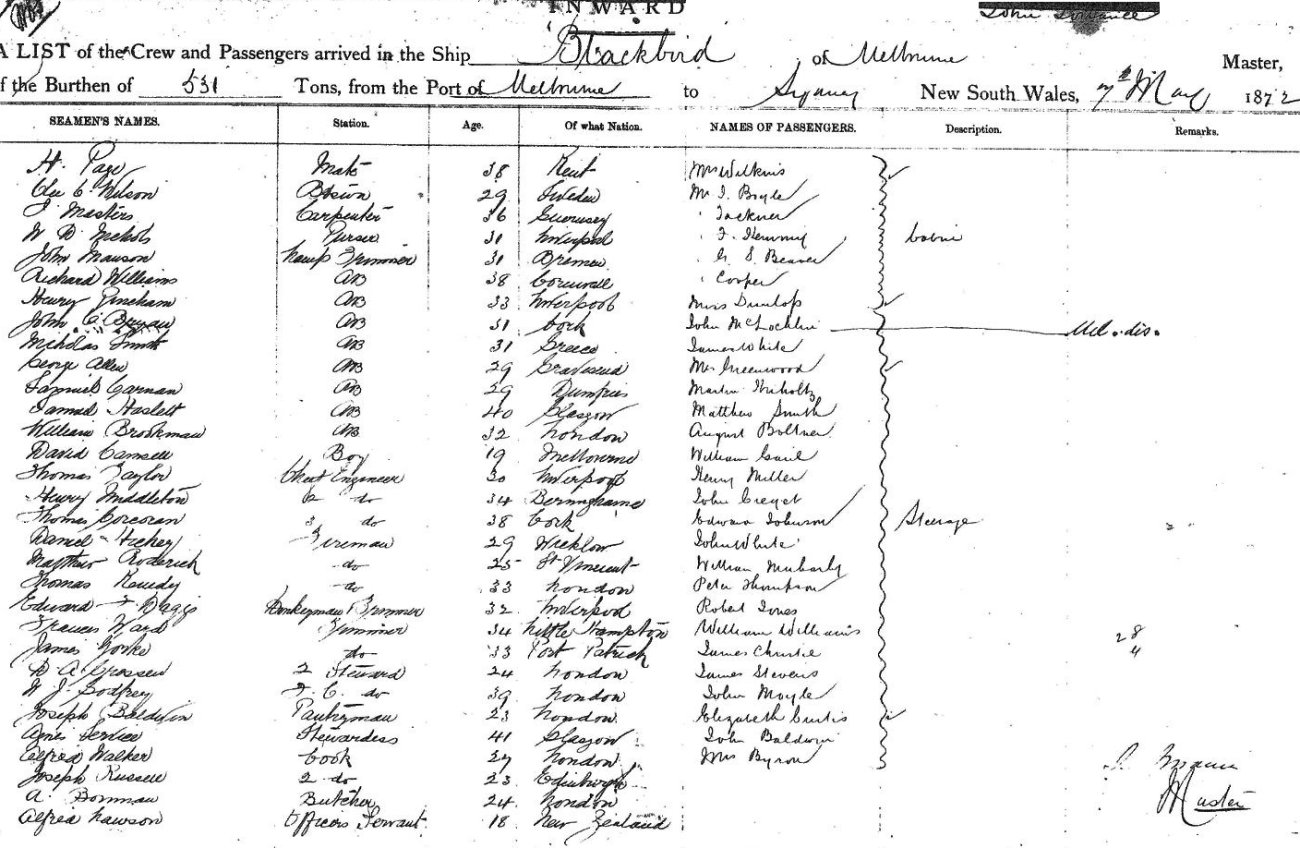 INWARD
A LIST of the Crew and Passengers arrived in the Ship Blackbird of Melbourne Master,
of the Burthen of 531 Tons, from the Port of Melbourne to Sydney New South Wales, 7th May 1872
SEAMEN'S NAMES. Station. Age. Of what Nation. NAMES OF PASSENGERS. Description. Remarks.
H. Page Mate 38 Kent Mrs Wilkins
C. Nelson Bosun 29 Sweden Mr J. Boyle
J. Masters Carpenter 36 Guernsey
W B Nichols Purser 31 Liverpool cabin
John Mawson Lamp Trimmer 31 Bremen G. S. Beaver
Richard Williams AB 38 Cornwall Cooper
Henry AB 33 Liverpool Miss Dunlop
John AB 31 Cork John McLochlin
Nicholas Smith AB 31 Greece James White
George Allen AB 29 Gravesend Mrs Greenwood
Samuel Carnan AB 29 Dumfries Martin
Samuel Haslett AB 40 Glasgow Matthew Smith
William Brookman AB 32 London August Boltner
David Camsell Boy 19 Melbourne William
Thomas Taylor Chief Engineer 30 Liverpool Henry Miller
Henry Middleton 2 do 34 Berminghame John
Thomas Corcoran 3 do 38 Cork Edward Johnson Steerage
Daniel Fireman 29 Wicklow John White
Matthew Roderick do 25 St Vincent William
Thomas Kenedy do 33 London Peter Thompson
Edward F Daggs Donkeyman Trimmer 32 Liverpool Robert Jones
Francis Ward Trimmer 34 Little Hampton William Williams 28
James Yorke do 33 Port Patrick James Christie 4
2 Steward 24 London James Stevens
W J. Godfrey F. C. do 39 London John Moyle
Joseph Baldwin Pantryman 23 London Elizabeth Curtis
Agnes Service Stewardess 41 Glasgow John Baldwin
Alfred Walker Cook 27 London Mrs Byron
Joseph Russell 2 do 23 Edinburgh
A. Bowman Butcher 24 London Master
Alfred Lawson Officers Servant 18 New Zealand